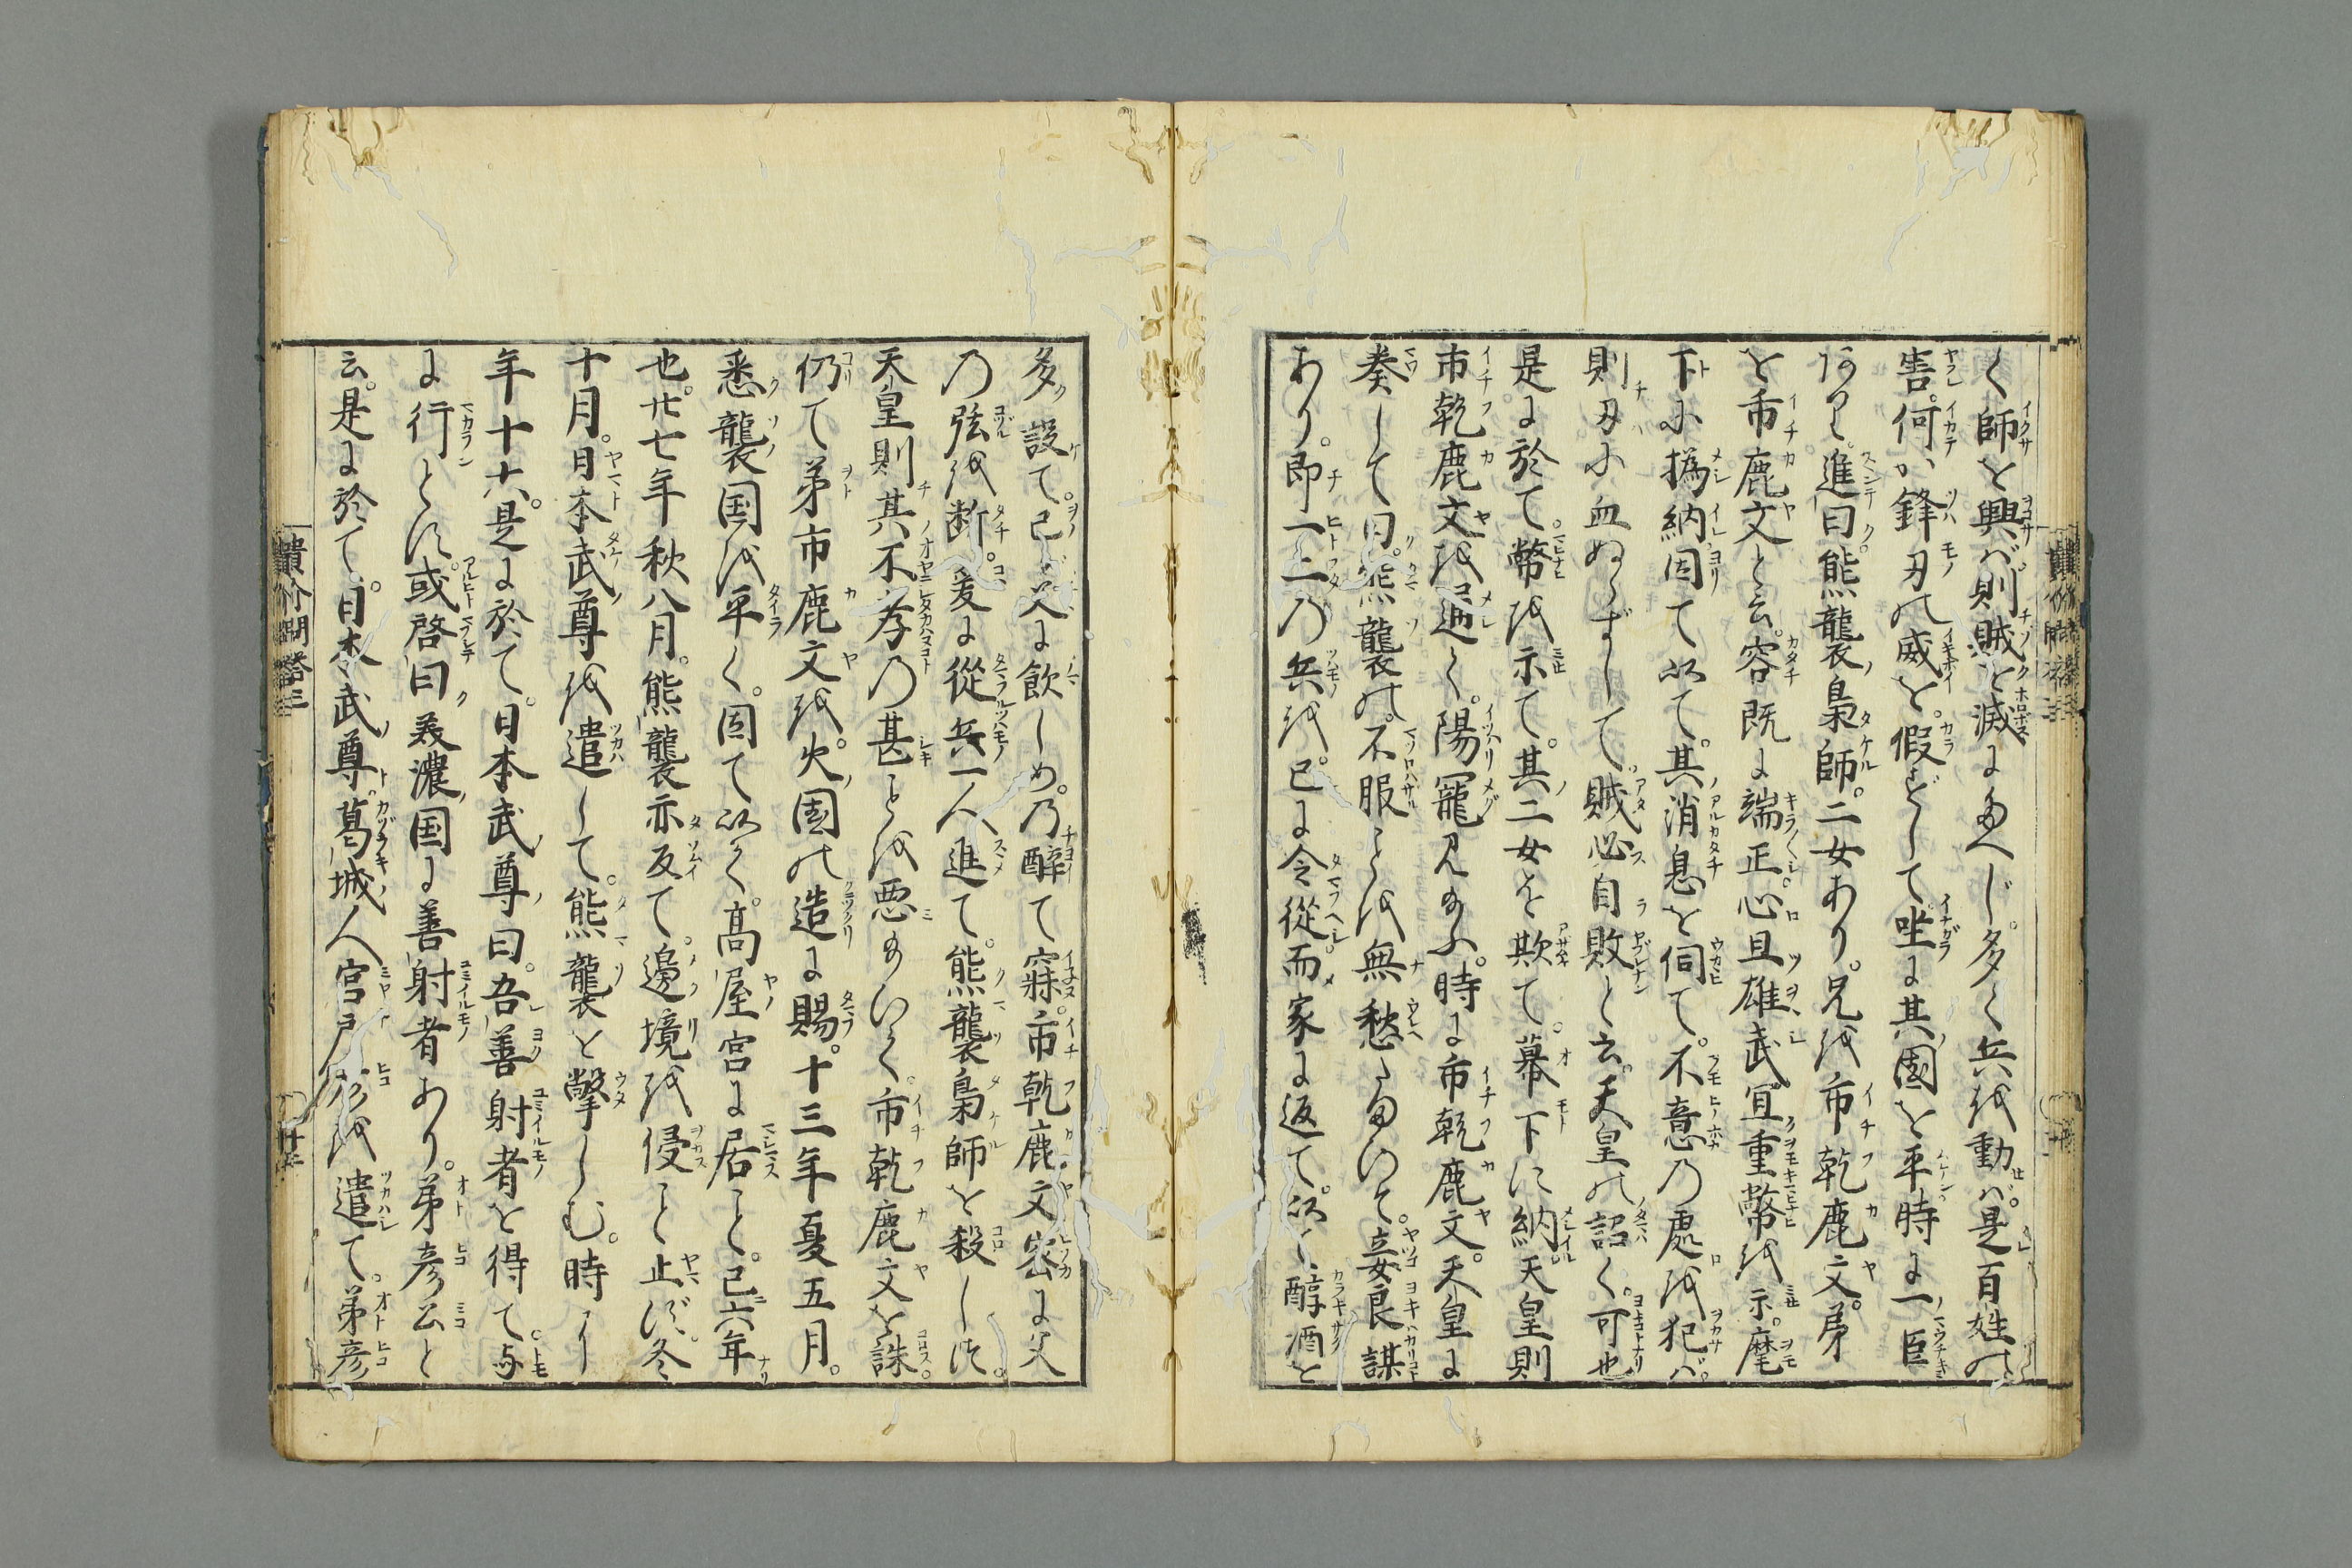 く師を興バ則賊を滅にあへじ多く兵を動バ是百姓の
害何か鋒刃の威を假ずして坐に其國を平時に一臣
進曰熊襲梟師二女あり兄を市乾鹿文弟
を市鹿文と云容既に端正心且雄武宜重幣を示麾
下に撝納因て以て其消息を伺て不意の處を犯バ
則刃に血ぬらずして賊必自敗と云天皇の詔く可也
是に於て幣を示て其二女を欺て幕下に納天皇則
市乾鹿文を通く陽寵見給ふ時に市乾鹿文天皇に
奏して曰熊襲の不服を無愁たまひそ妾良謀
あり即一二の兵を已に令從而家に返て以く醇酒を
多設て己が父に飲しめ乃醉て寐市乾鹿文密に父
の弦を断爰に從兵一人進て熊襲梟師を殺しぬ
天皇則其不孝の甚を悪給ひく市乾鹿文を誅
仍て弟市鹿文を火國の造に賜十三年夏五月
悉襲国を平く因て以く髙屋宮に居こと已六年
也廿七年秋八月熊襲亦反て邊境を侵こと止ず冬
十月日本武尊を遣して熊襲を撃しむ時に
年十六是に於て日本武尊曰吾善射者を得て与
に行とす或啓曰美濃国に善射者あり弟彦公と
云是に於て日本武尊葛城人宮戸彦を遣て弟彦